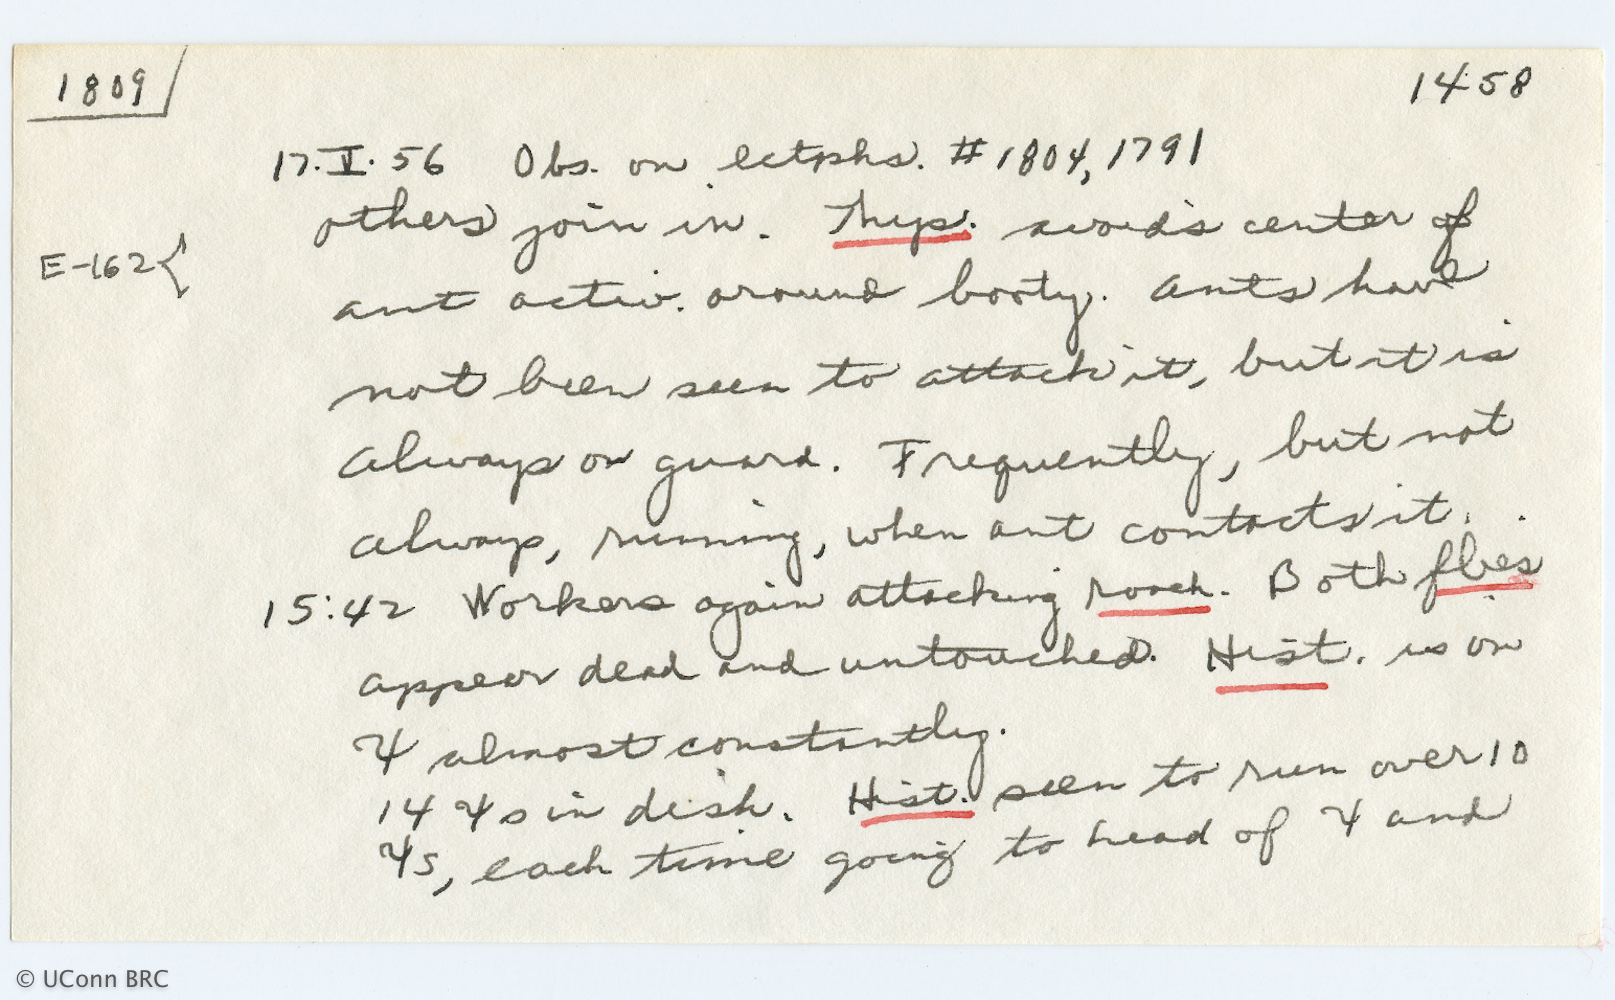 1809
1458
17.V.56 Obs. on ectphs. #1804, 1791
others join in. Thys. avoids center of
E-162{
ant activ. around booty. Ants have
not been seen to attack it, but it is
always on guard. Frequently, but not
always, running, when ant contacts it.
15:42 Workers again attacking roach. Both flies
appear dead and untouched. Hist. is on
♃ almost constantly.
14 ♃s in dish. Hist. seen to run over 10
♃s, each time going to head of ♃ and
© UConn BRC